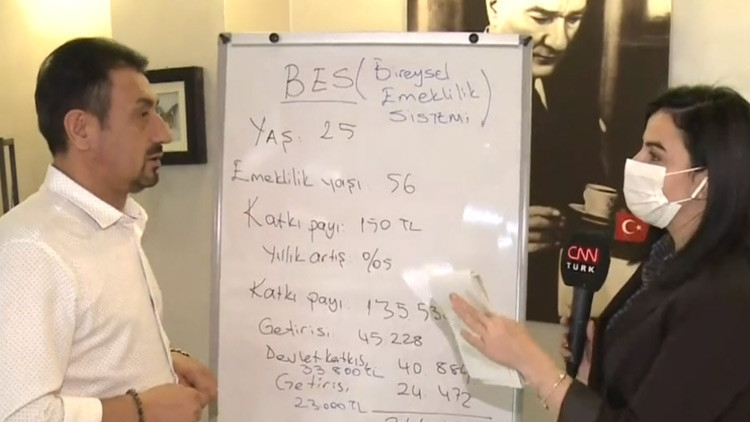 BES (Bireysel
Emeklilik
SİSTEMİ)
YAŞ. 25
Emeklilik yaşı 56
Katkı payı: 150 TL
Yıllık artış: %05
Katkı payı: 135 53
Getirisi: 45.228
Devlet katkıs, 40 884
33 800 TL
Getiris, 24.472
23.000 TL
CNN
TURK